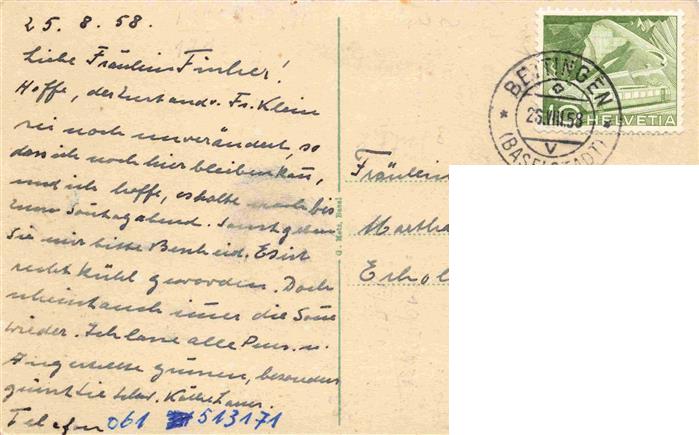 25.8.58.
Liebe Fräulein Fincher!
Hoffe, der Zustand v. Fr. Klein
sei noch unverändert, so
dass ich noch hier bleiben kann,
und ich hoffe, es halte noch bis
zum Sonntagabend. Sonst geben
Sie mir bitte Bescheid. Es ist
recht kühl geworden. Doch
scheint auch immer die Sonne
wieder. Ich lasse alle Pens. u.
Angestellte grüssen, besonders
grüsst Sie
Telefon 061 513171
G. Metz, Basel
Fräulein
Martha
Erhol
BETTINGEN
25.VIII.58
V
(BASELSTADT)
10 HELVETIA